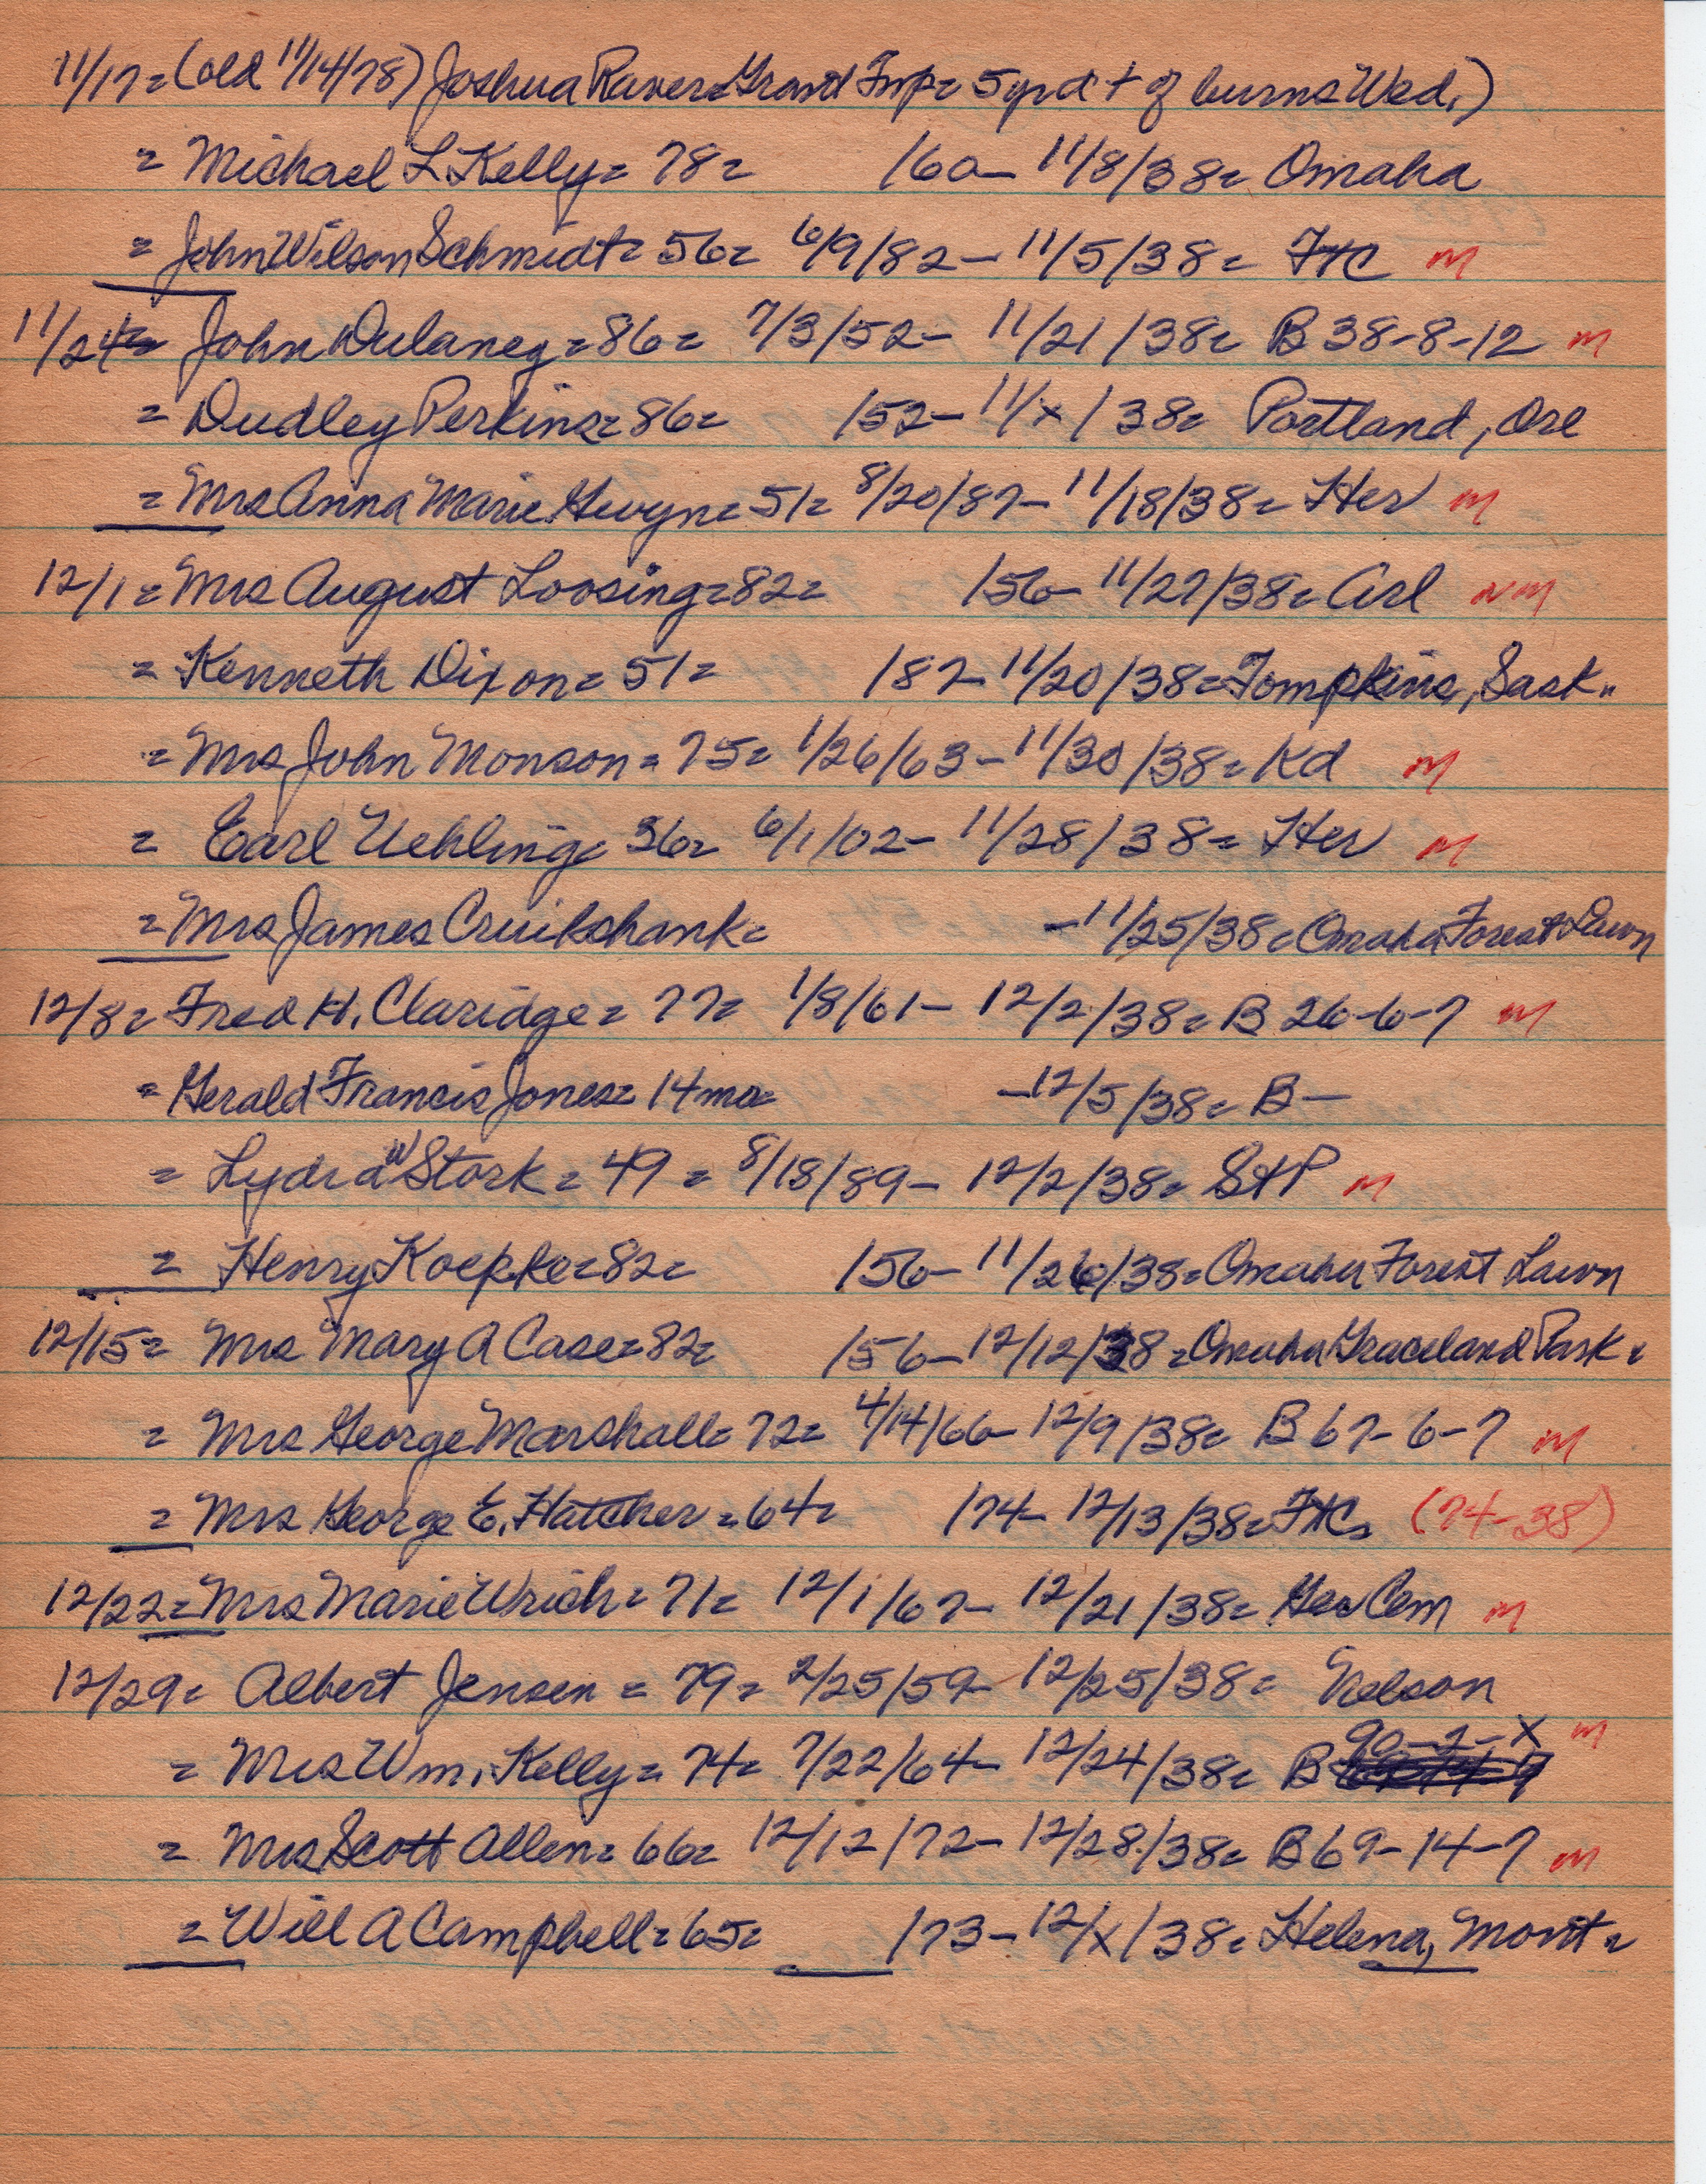 11/17= (old 11/14/78) Joshua Raver= Grand Imp= 5yrd + of burns Wed.)
= Michael L Kelly= 78= /60- 11/8/38= Omaha
= John Wilson Schmidt= 56= 6/9/82- 11/5/38= FHC m
11/24= John Dulaney= 86= 7/3/52- 11/21/38= B 38-8-12 m
= Dudley Perkins= 86= /52- 11/x/38= Portland, Ore
= Mrs Anna Marie Gwyn= 51= 8/20/87- 11/18/38= Her m
12/1= Mrs August Loosing= 82= /56- 11/27/38= Arl nm
= Kenneth Dixon= 51= /87- 11/20/38= Tompkins, Sask.
= Mrs John Monson= 75= 1/26/63- 11/30/38= Kd m
= Earl Uehling= 36= 6/1/02- 11/28/38= Her m
= Mrs James Cruikshank= -11/25/38= Omaha Forest Lawn
12/8= Fred H. Claridge= 77= 1/8/61- 12/2/38= B 26-6-7 m
= Gerald Francis Jones= 14mo= -12/5/38= B-
= Lydia W Stork= 49= 8/18/89- 12/2/38= StP m
= Henry Koepke= 82= /56- 11/26/38= Omaha Forest Lawn
12/15= Mrs Mary A Case= 82= /56- 12/12/38= Omaha Graceland Park=
= Mrs George Marshall= 72= 4/14/66- 12/9/38= B 67-6-7 m
= Mrs George E. Hatcher= 64= /74- 12/13/38= FHC= (74-38)
12/22= Mrs Marie Wrich= 71= 12/1/67- 12/21/38= Ger Cem m
12/29= Albert Jensen= 79= 2/25/59- 12/25/38= Nelson
= Mrs Wm. Kelly= 74= 7/22/64- 12/24/38= B 90-2-X m
= Mrs Scott Allen= 66= 12/12/72- 12/28/38= B 69-14-7 m
= Will A Campbell= 65= /73- 12/x/38= Helena, Mont=